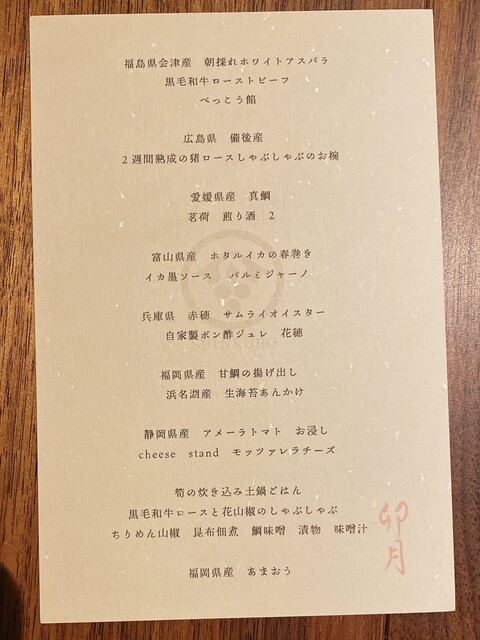 福島県会津産　朝採れホワイトアスパラ
黒毛和牛ローストビーフ
べっこう餡
広島県　備後産
２週間熟成の猪ロースしゃぶしゃぶのお椀
愛媛県産　真鯛
茗荷　煎り酒　２
富山県産　ホタルイカの春巻き
イカ墨ソース　パルミジャーノ
兵庫県　赤穂　サムライオイスター
自家製ポン酢ジュレ　花穂
福岡県産　甘鯛の揚げ出し
浜名湖産　生海苔あんかけ
静岡県産　アメーラトマト　お浸し
cheese　stand　モッツァレラチーズ
筍の炊き込み土鍋ごはん
黒毛和牛ロースと花山椒のしゃぶしゃぶ
ちりめん山椒　昆布佃煮　鯛味噌　漬物　味噌汁
卯月
福岡県産　あまおう